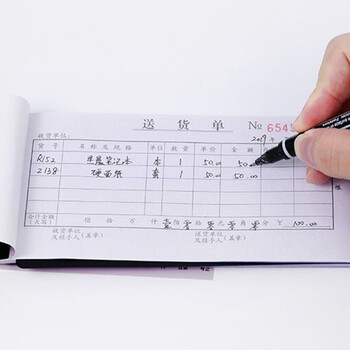 送货单 № 654
2019
收货单位:
货号 名称及规格 单位 数量 单价 金额
R152 笔记本 本 1 50.00 50.00
2138 硬面纸 套 1 50.00 50.00
合计金额(大写) 佰 拾 万 仟 壹佰 零拾 零元 零角 零分 ¥ 100.00
收货单位 及经手人(盖章) 送货单位 及经手人(盖章)